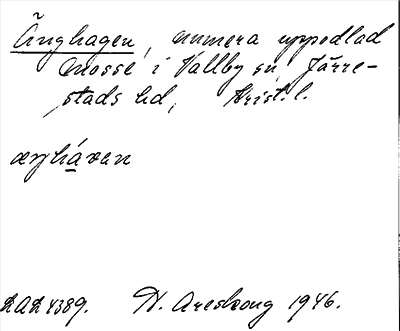 Änghagen, numera uppodlad
mosse i Vallby sn, Järre-
stads hd, Krist. l.
æŋháven
LAL 4389. N. Areskoug 1946.